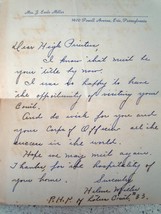 Mrs. J. Earle Miller
Erie, Pennsylvania
Dear High Priestess
I know that must be
your title by now,
I am so happy to have
the opportunity of visiting your
Court.
And do wish for you and
your Corps of Officers all the
success in the world.
Hope we may meet again.
Thanks for the hospitality
of your house.
Sincerely
Helene Miller
P.H.P of Lotus Court 53.